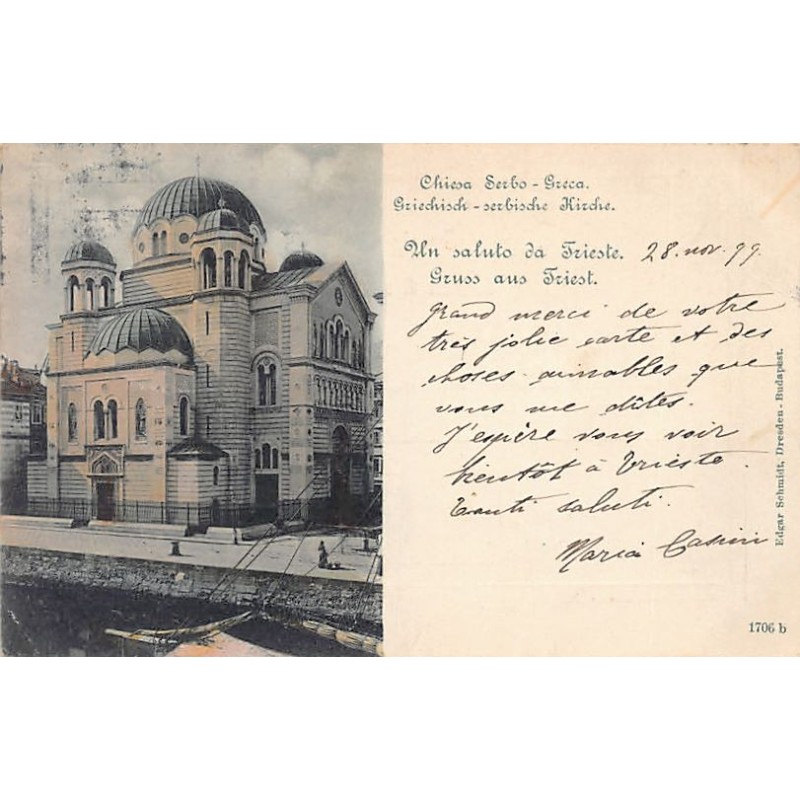 Chiesa Serbo-Greca.
Griechisch-serbische Kirche.
Un saluto da Trieste. 28. nov. 99
Gruss aus Triest.
Grand merci de votre
très jolie carte et des
choses aimables que
vous me dîtes.
J'espère vous voir
bientôt à Trieste.
Tanti saluti.
Maria
Edgar Schmidt, Dresden-Budapest.
1706 b